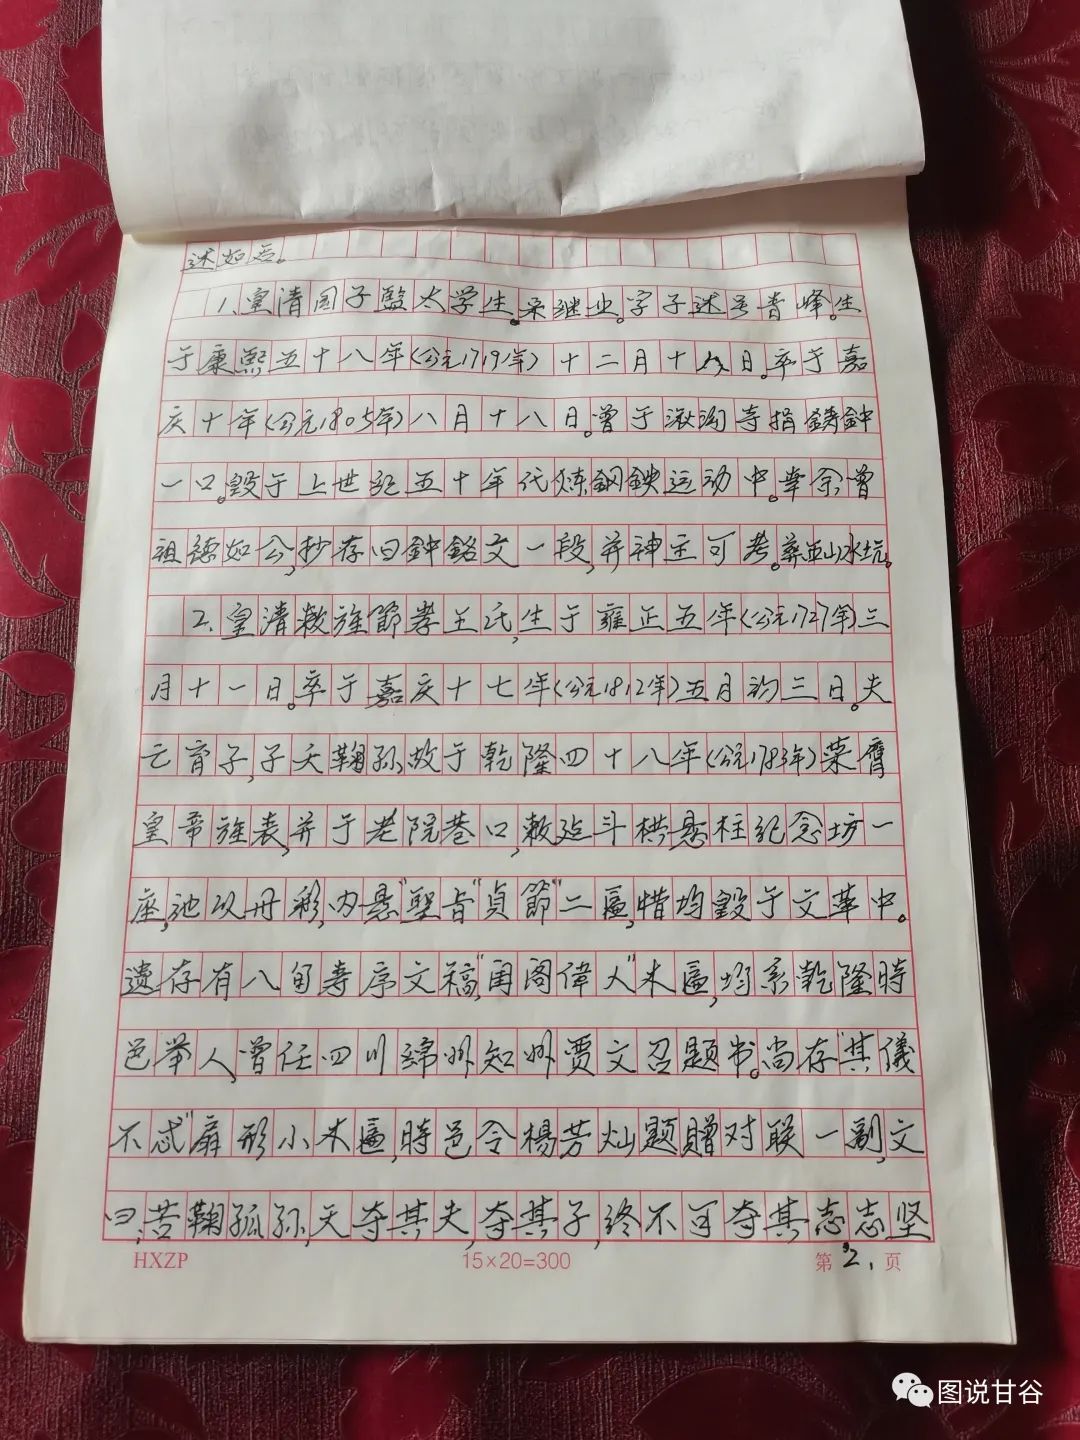 述如后。
1.皇清国子監太学生。宋继业。字子述号青峰。生
于康熙五十八年(公元1719年)十二月十八日。卒于嘉
庆十年(公元1805年)八月十八日。曾于湫沟寺捐鋳鈡
一口。毀于上世纪五十年代炼鋼鉄运动中。幸余曾
祖德如公,抄存旧鈡銘文一段,并神主可考。葬西山水坑。
2.皇清敕旌節孝王氏,生于雍正五年(公元1727年)三
月十一日。卒于嘉庆十七年(公元1812年)五月初三日。夫
亡育子,子夭鞠孙,故于乾隆四十八年(公元1783年)荣膺
皇帝旌表,并于老院巷口,敕建斗栱悬柱纪念坊一
座,池以丹彩,内悬"聖旨"貞節"二匾,惜均毀于文革中。
遗存有八旬寿序文稿,"闺阁偉人"木匾,均系乾隆時
邑举人,曾任四川綿州知州贾文召題书。尚存"其儀
不忒"扇形小木匾,時邑令楊芳灿題贈对联一副,文
曰:苦鞠孤孙,天夺其夫,夺其子,终不可夺其志,志坚
HXZP
15×20=300
第2.页
图说甘谷